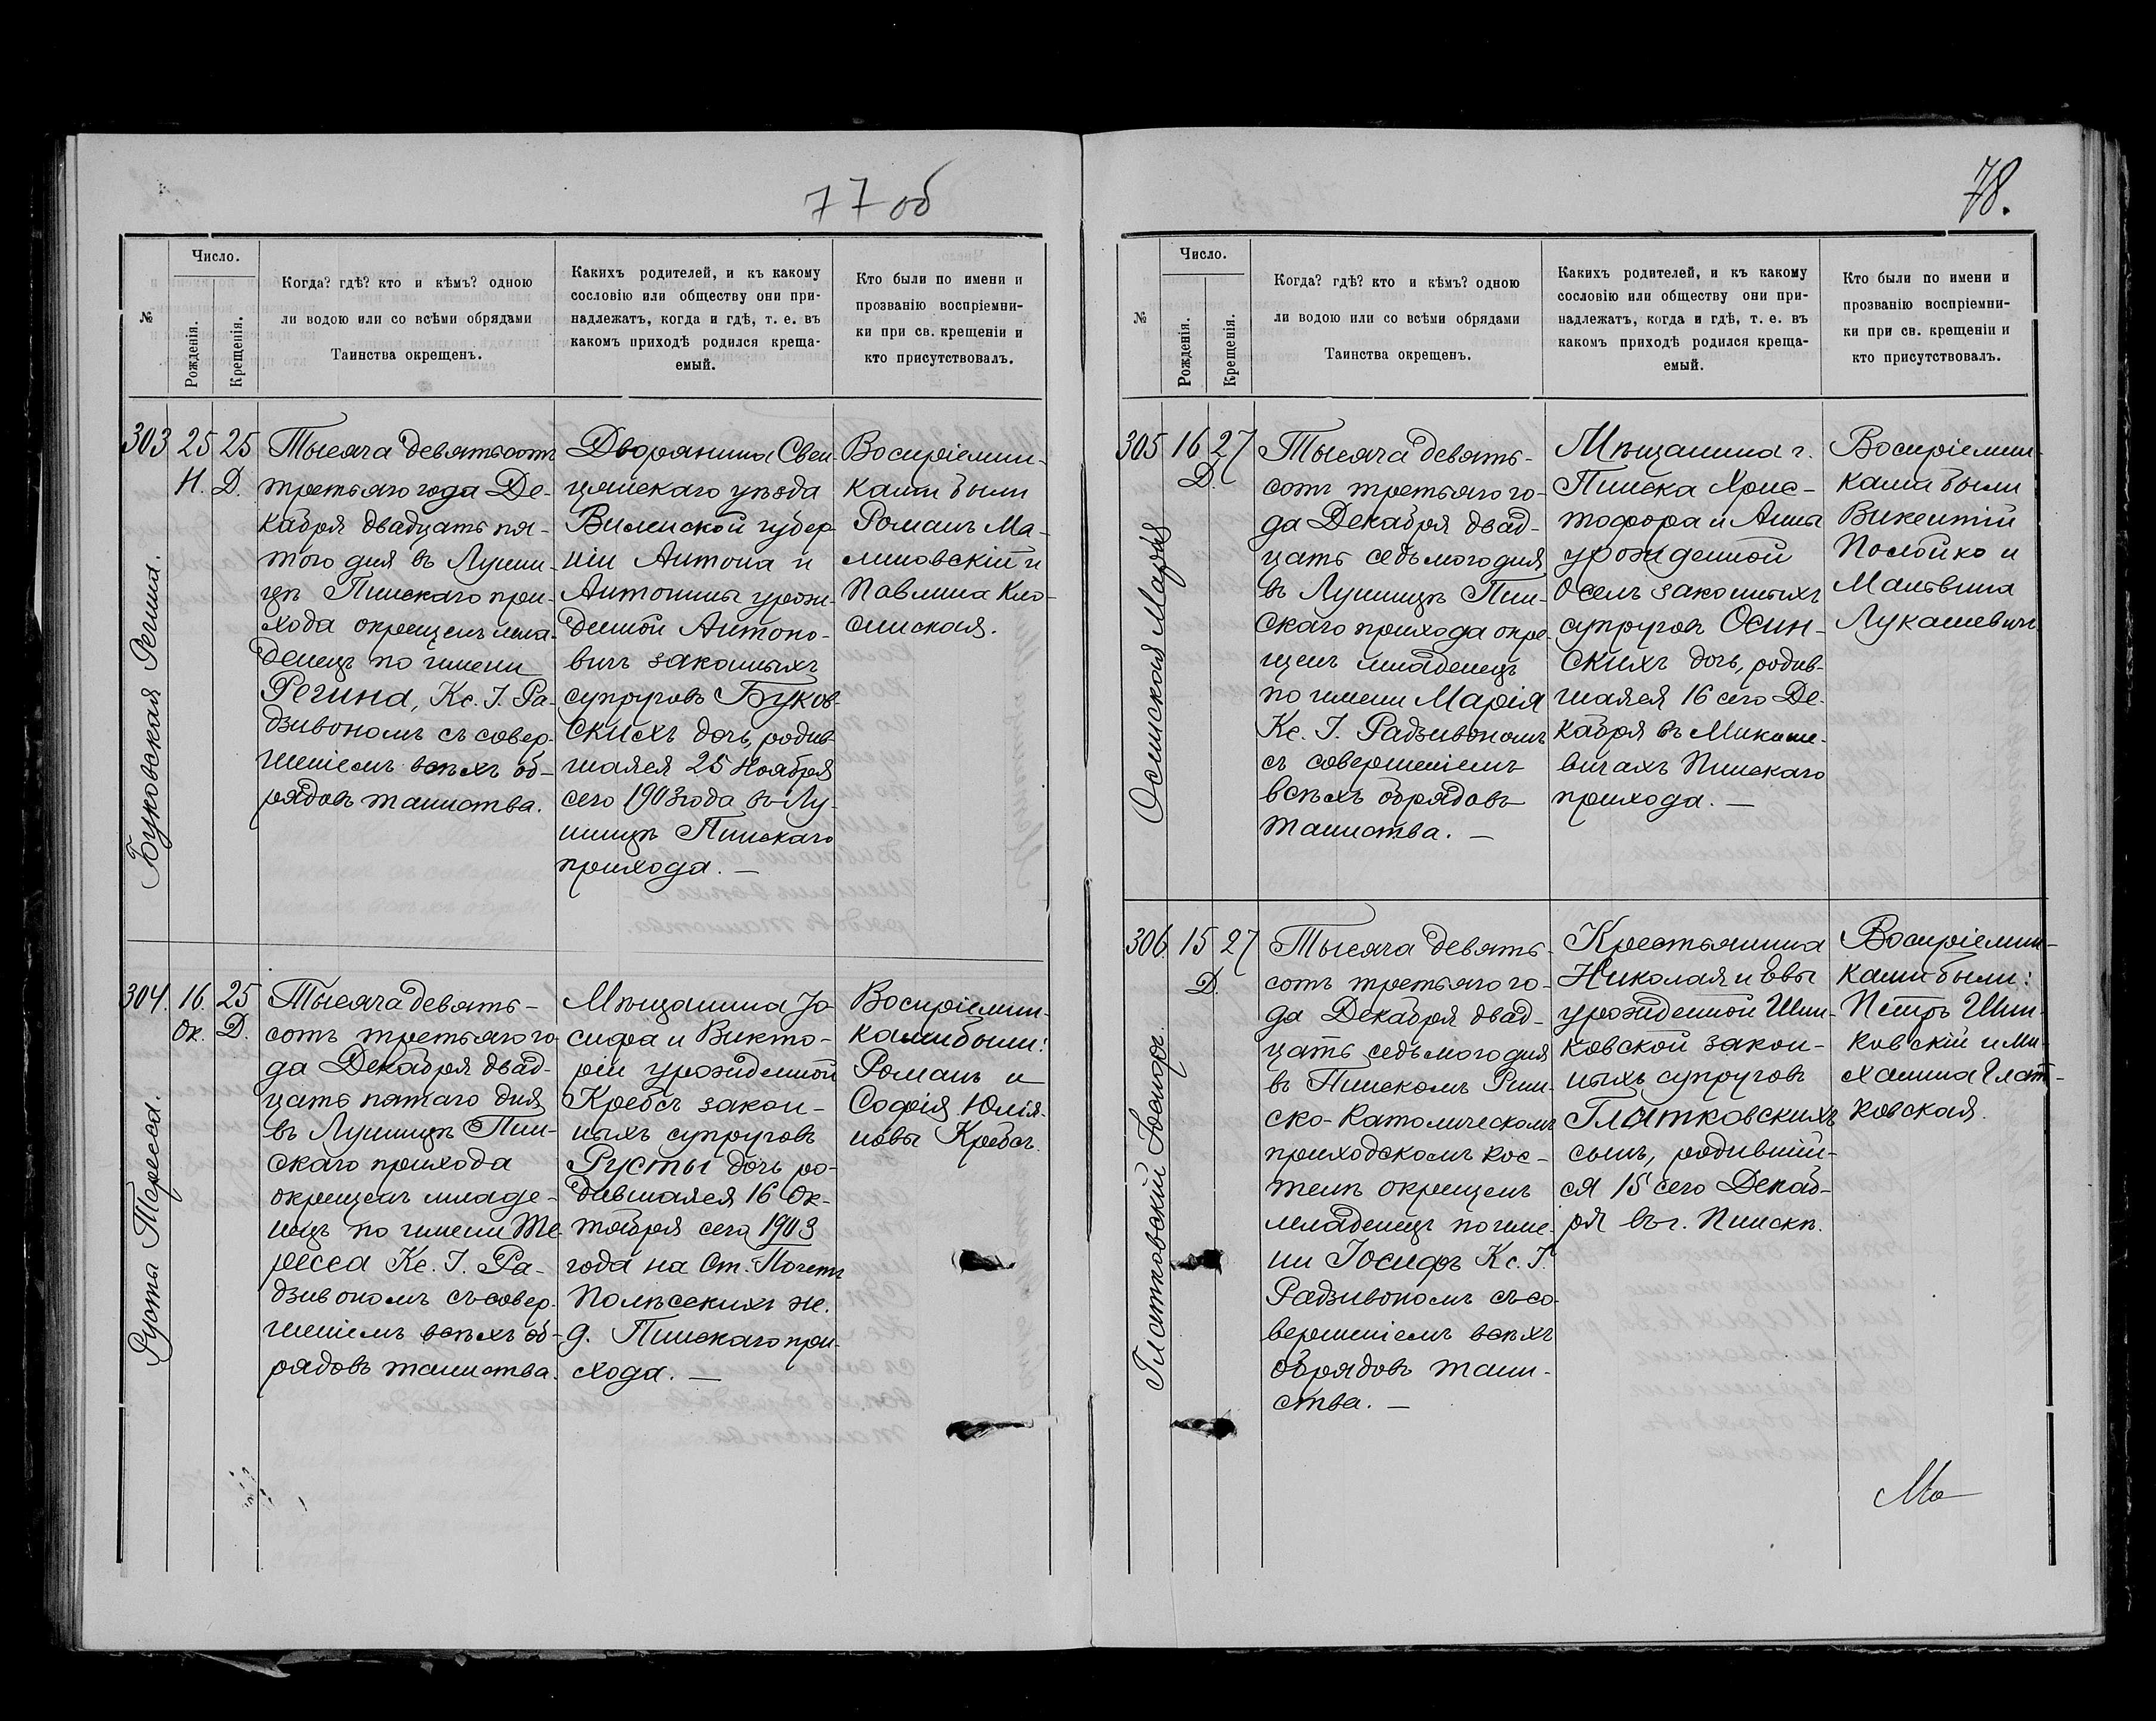 77 об
№
Число.
Рожденія.
Крещенія.
Когда? гдѣ? кто и кѣмъ? одною
ли водою или со всѣми обрядами
Таинства окрещенъ.
Какихъ родителей, и къ какому
сословію или обществу они при-
надлежатъ, когда и гдѣ, т. е. въ
какомъ приходѣ родился креща-
емый.
Кто были по имени и
прозванію воспріемни-
ки при св. крещеніи и
кто присутствовалъ.
303
Буковская Регина.
25
Н.
25
Д.
Тысяча девятьсотъ
третьяго года Де-
кабря двадцать пя-
того дня въ Лунин-
цѣ Пинскаго при-
хода окрещенъ мла-
денецъ по имени
Регина, Кс. І. Ра-
дзивономъ съ совер-
шеніемъ всѣхъ об-
рядовъ таинства.
Дворянина Свен-
цянскаго уѣзда
Виленской губер-
ніи Антона и
Антонины урож-
денной Антоно-
вичъ законныхъ
супруговъ Буков-
скихъ дочь, родив-
шаяся 25 Ноября
сего 1903 года въ Лу-
нинцѣ Пинскаго
прихода. —
Воспріемни-
ками были
Романъ Ма-
линовскій и
Павлина Кло-
синская.
304.
Руста Тересса.
16.
Ок.
25
Д.
Тысяча девять-
сотъ третьяго го-
да Декабря двад-
цать пятаго дня
въ Лунинцѣ Пин-
скаго прихода
окрещенъ младе-
нецъ по имени Те-
ресса Кс. І. Ра-
дзивономъ съ совер-
шеніемъ всѣхъ об-
рядовъ таинства.
Мѣщанина Іо-
сифа и Викто-
ріи урожденной
Кребсъ закон-
ныхъ супруговъ
Русты дочь ро-
дившаяся 16 Ок-
тября сего 1903
года на Ст.
Полѣсскихъ ж.
д. Пинскаго при-
хода. —
Воспріемни-
ками были:
Романъ и
Софія Юлія-
новы Кребсъ.
78.
№
Число.
Рожденія.
Крещенія.
Когда? гдѣ? кто и кѣмъ? одною
ли водою или со всѣми обрядами
Таинства окрещенъ.
Какихъ родителей, и къ какому
сословію или обществу они при-
надлежатъ, когда и гдѣ, т. е. въ
какомъ приходѣ родился креща-
емый.
Кто были по имени и
прозванію воспріемни-
ки при св. крещеніи и
кто присутствовалъ.
305
Осинская Марія
16
Д.
27
Тысяча девять-
сотъ третьяго го-
да Декабря двад-
цать седьмого дня
въ Лунинцѣ Пин-
скаго прихода окре-
щенъ младенецъ
по имени Марія
Кс. І. Радзивономъ
съ совершеніемъ
всѣхъ обрядовъ
таинства. —
Мѣщанина г.
Пинска Хрис-
тофора и Анны
урожденной
Осемъ законныхъ
супруговъ Осин-
скихъ дочь, родив-
шаяся 16 сего Де-
кабря въ Микаше-
вичахъ Пинскаго
прихода. —
Воспріемни-
ками были
Викентій
Полойко и
Мальвина
Лукашевичъ.
306.
Глатковскій Іосифъ.
15
Д.
27
Тысяча девять-
сотъ третьяго го-
да Декабря двад-
цать седьмого дня
въ Пинскомъ Рим-
ско-Католическомъ
приходскомъ кос-
телѣ окрещенъ
младенецъ по име-
ни Іосифъ Кс. І.
Радзивономъ съ со-
вершеніемъ всѣхъ
обрядовъ таин-
ства. —
Крестьянина
Николая и Евы
урожденной Шин-
ковской закон-
ныхъ супруговъ
Глатковскихъ
сынъ, родившій-
ся 15 сего Декаб-
ря въ г. Пинскѣ.
Воспріемни-
ками были:
Петръ Шин-
ковскій и Ми-
халина Глат-
ковская.